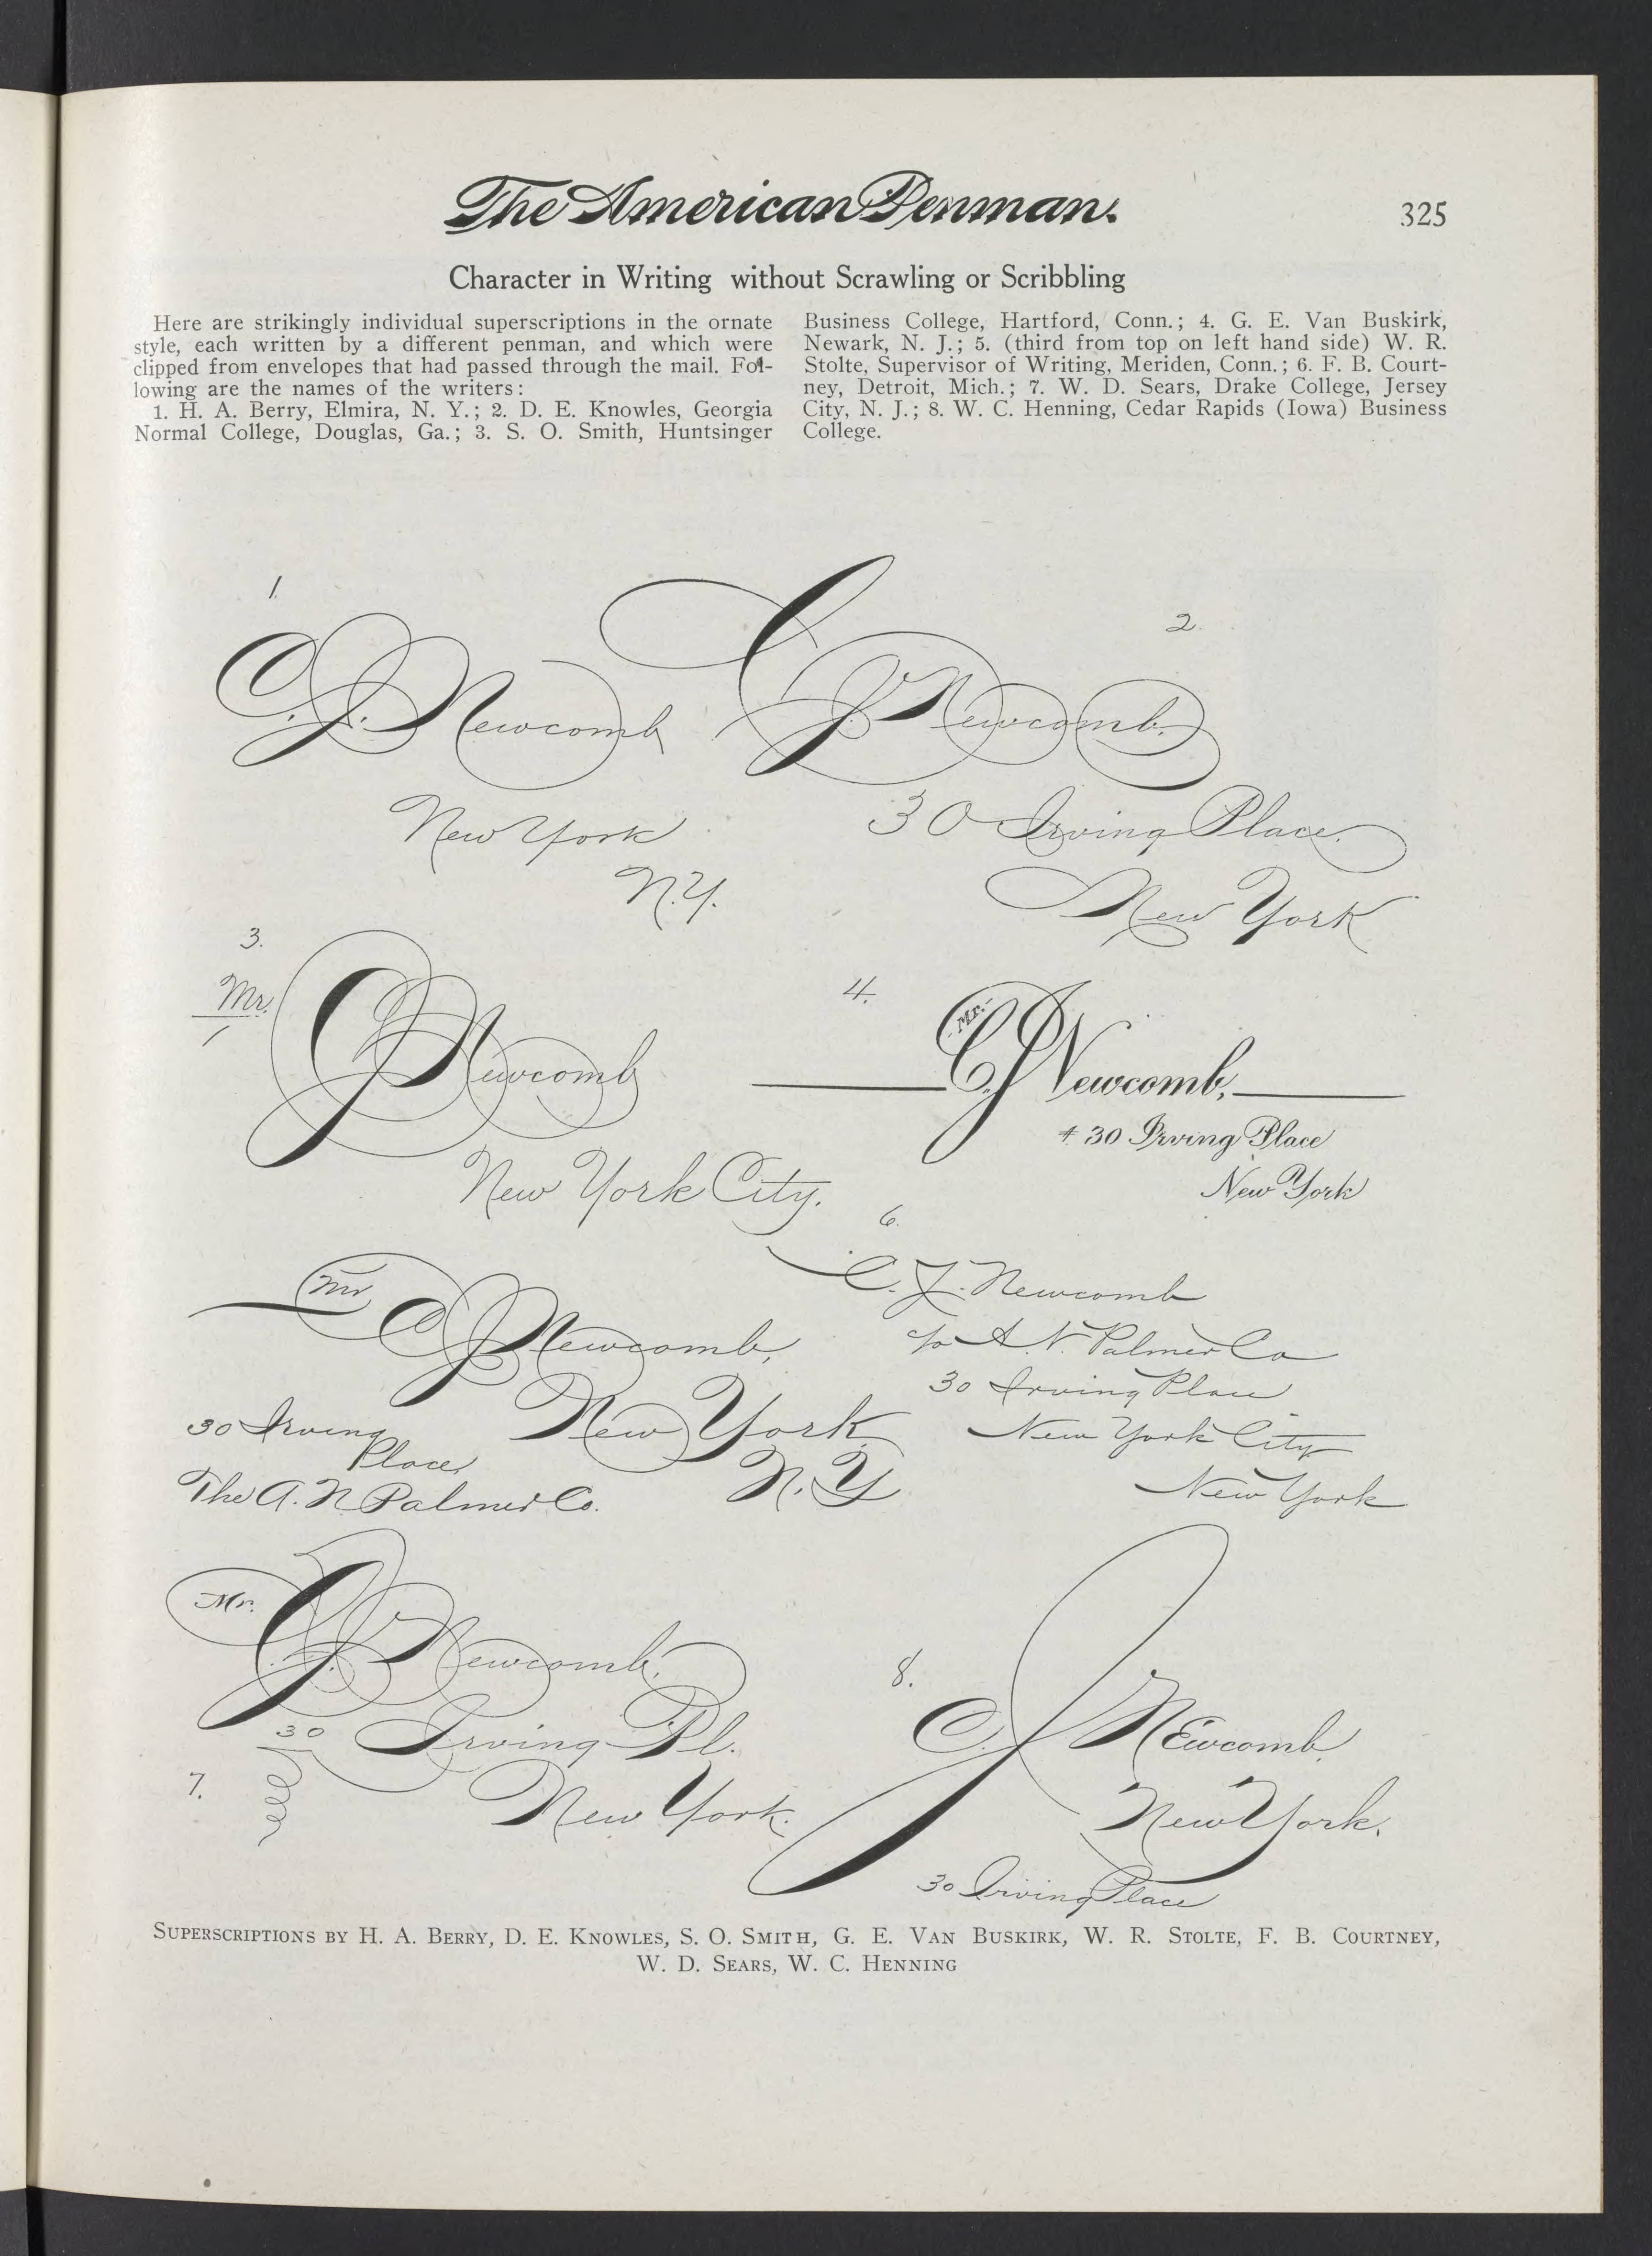 The American Penman.
325
Character in Writing without Scrawling or Scribbling
Here are strikingly individual superscriptions in the ornate
style, each written by a different penman, and which were
clipped from envelopes that had passed through the mail. Fol-
lowing are the names of the writers:
1. H. A. Berry, Elmira, N. Y.; 2. D. E. Knowles, Georgia
Normal College, Douglas, Ga.; 3. S. O. Smith, Huntsinger
Business College, Hartford, Conn.; 4. G. E. Van Buskirk,
Newark, N. J.; 5. (third from top on left hand side) W. R.
Stolte, Supervisor of Writing, Meriden, Conn.; 6. F. B. Court-
ney, Detroit, Mich.; 7. W. D. Sears, Drake College, Jersey
City, N. J.; 8. W. C. Henning, Cedar Rapids (Iowa) Business
College.
1.
C. J. Newcomb
New York
N.Y.
2.
C J. Newcomb.
30 Irving Place.
New York
3.
Mr.
C J Newcomb
New York City.
4.
Mr.
C. J Newcomb,
# 30 Irving Place
New York
Mr
C J Newcomb,
New York
N. Y
30 Irving
Place,
The A. N Palmer Co.
6.
C. J. Newcomb
c/o A. N. Palmer Co
30 Irving Place
New York City
New York
Mr.
C. J. Newcomb.
30 Irving Pl.
New York.
7.
8.
C. J Newcomb.
New York.
30 Irving Place
Superscriptions by H. A. Berry, D. E. Knowles, S. O. Smith, G. E. Van Buskirk, W. R. Stolte, F. B. Courtney,
W. D. Sears, W. C. Henning